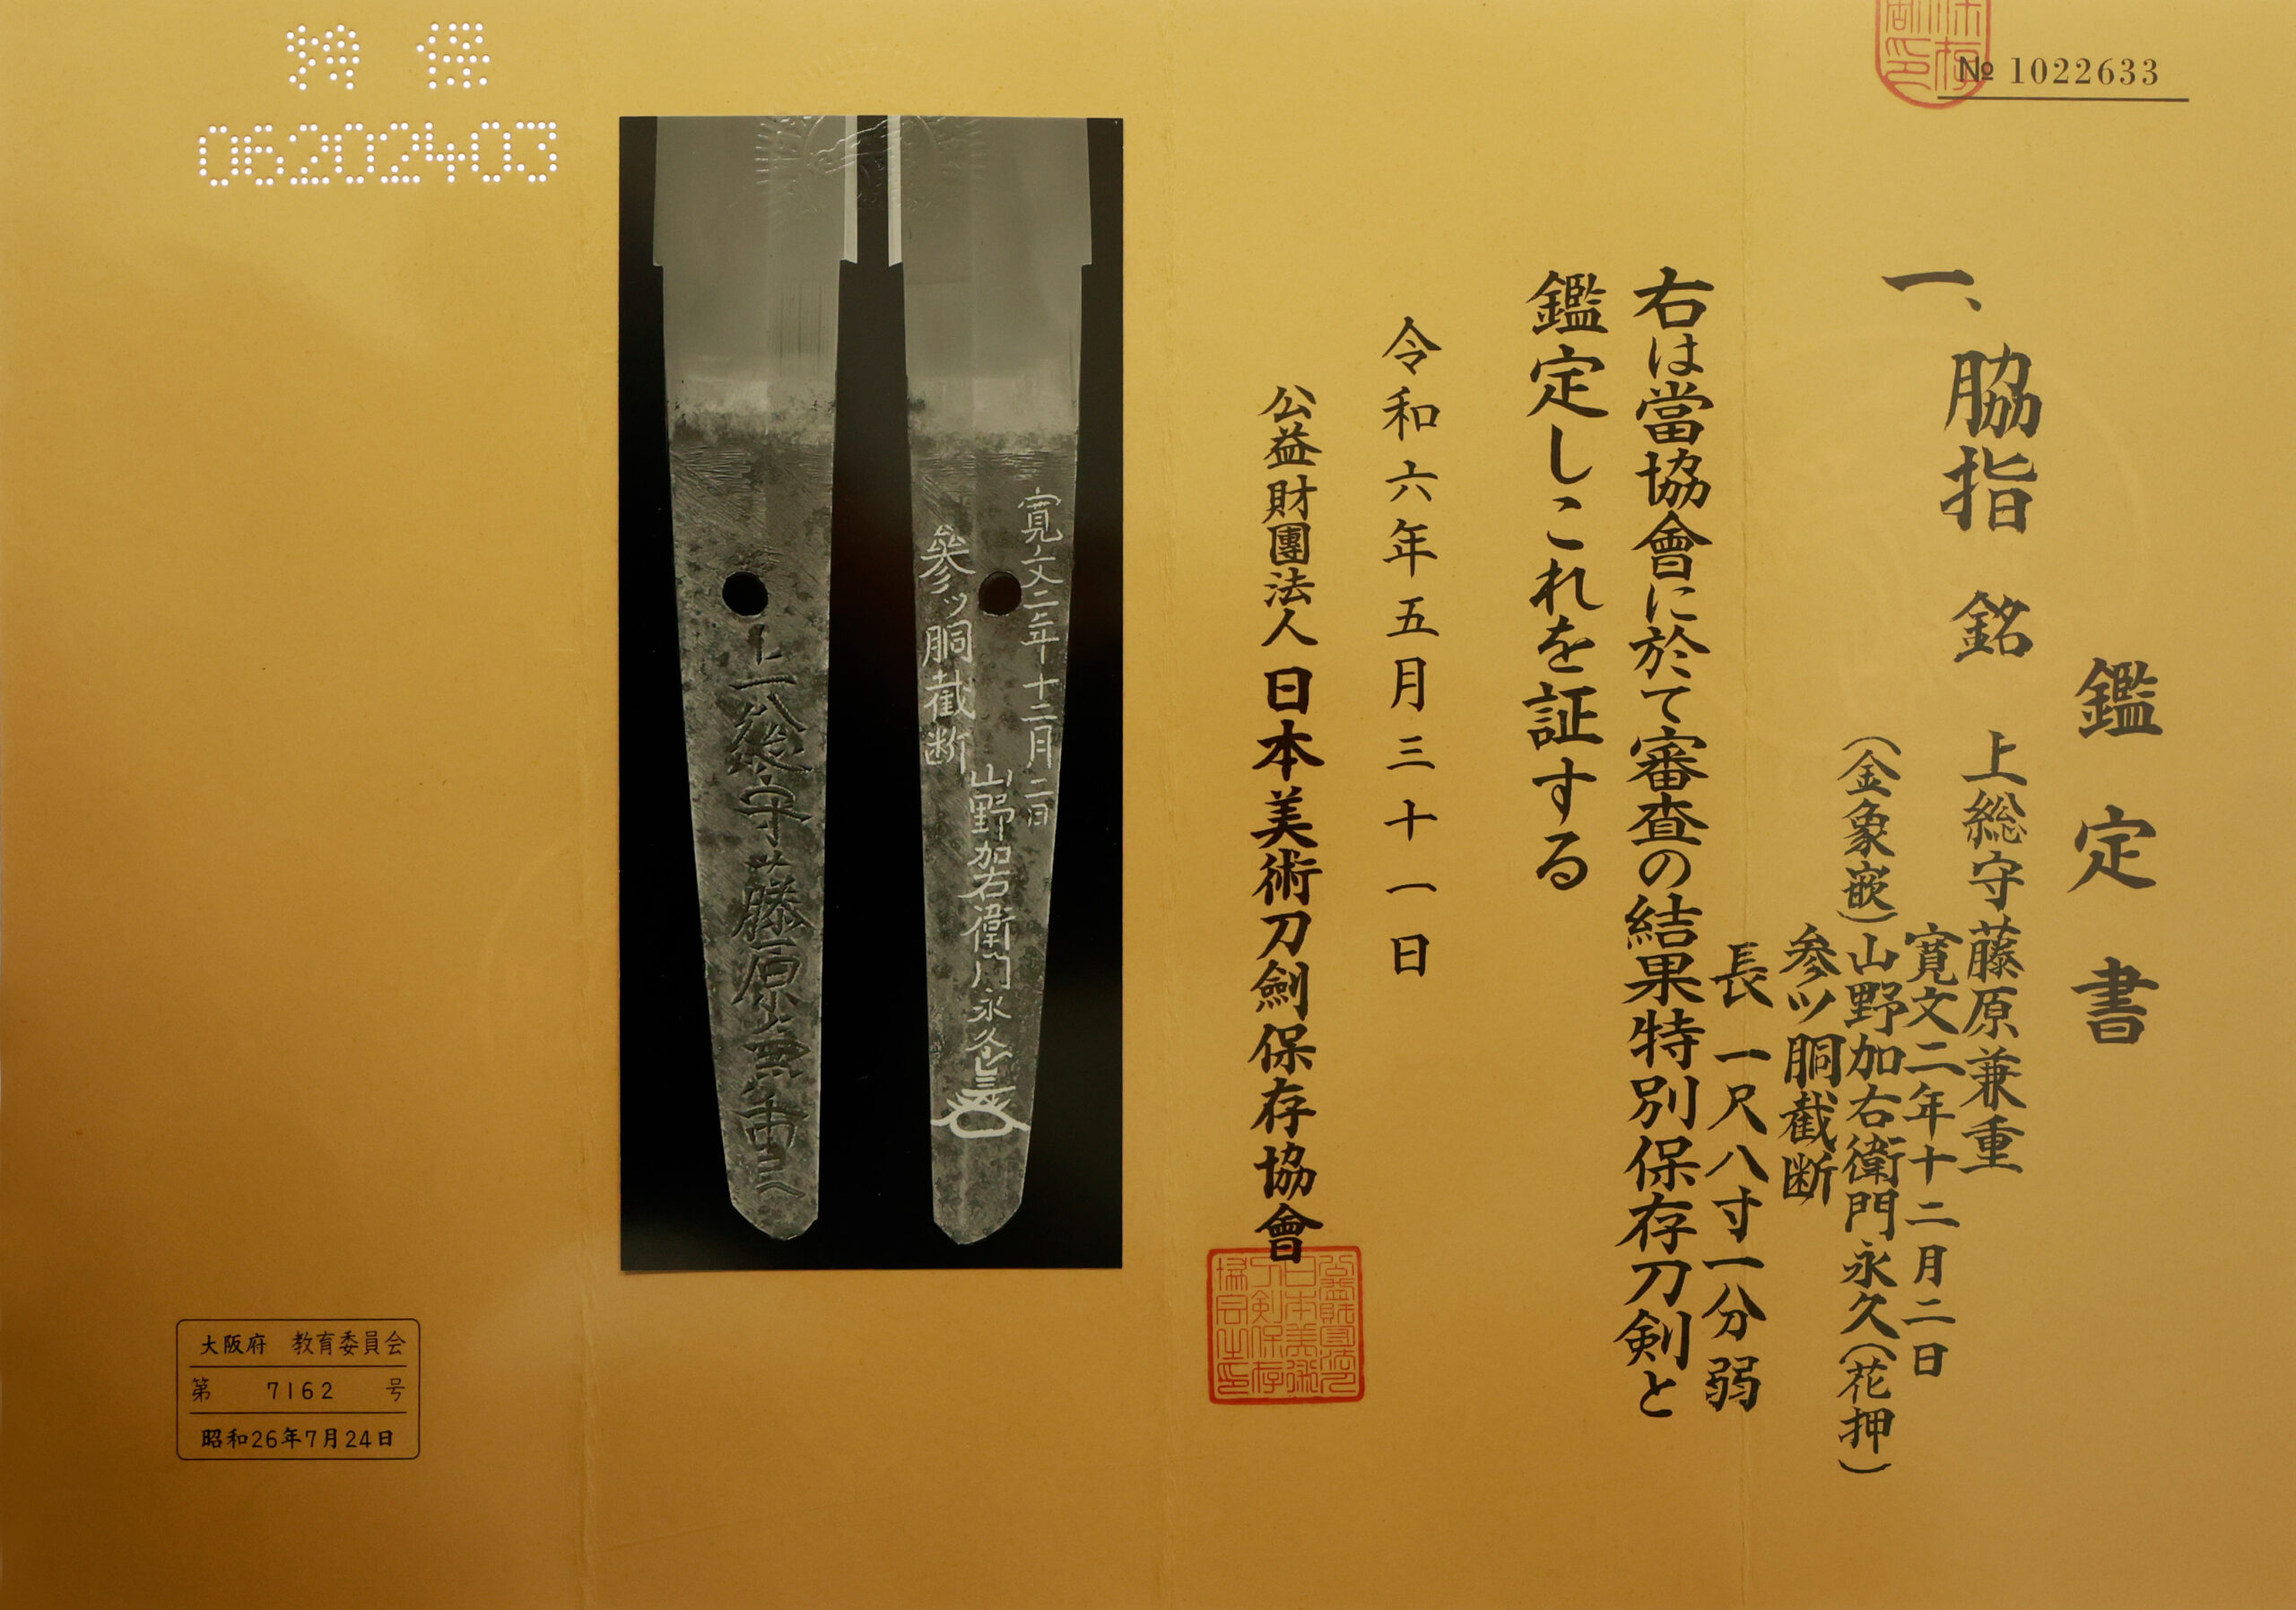 № 1022633
鑑定書
一、脇指 銘 上総守藤原兼重
寛文二年十二月二日
(金象嵌)山野加右衛門永久(花押)
参ツ胴截断
長 一尺八寸一分弱
右は當協會に於て審査の結果特別保存刀剣と
鑑定しこれを証する
令和六年五月三十一日
公益財團法人 日本美術刀劍保存協會
寛文二年十二月二日
山野加右衛門永久
参ツ胴截断
上総守藤原兼重
特 保
06202403
大阪府 教育委員会
第 7162 号
昭和26年7月24日